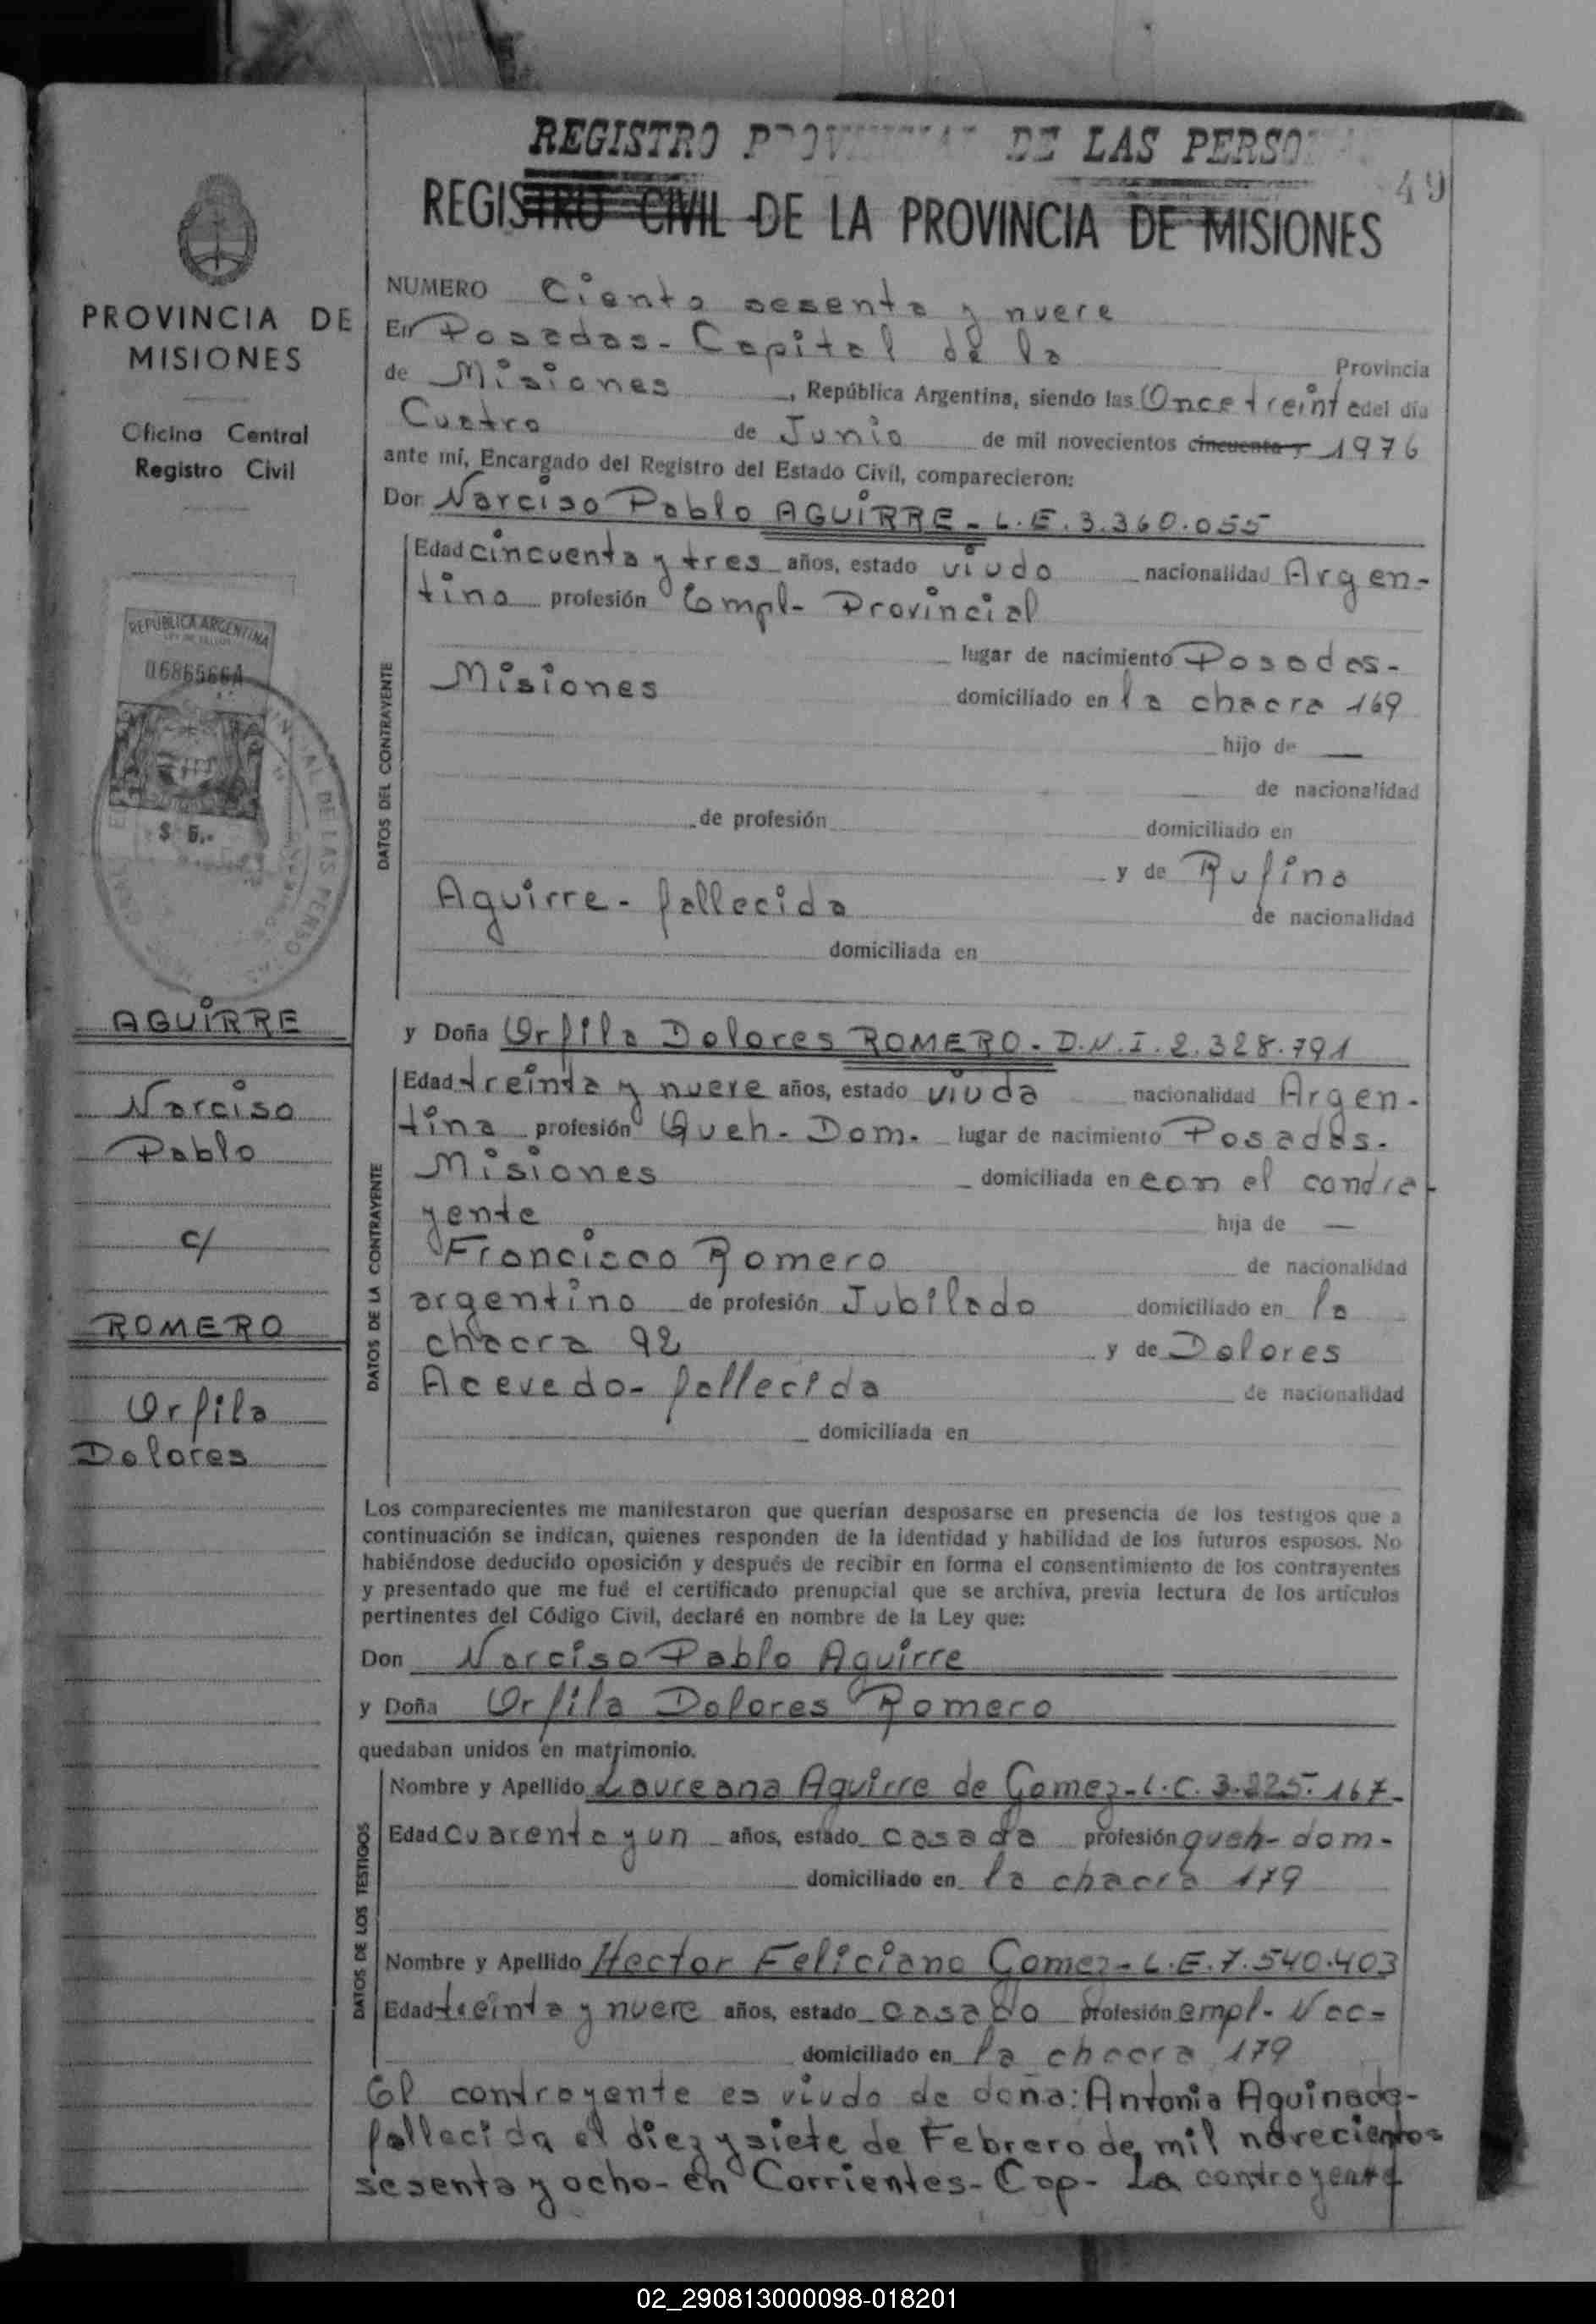 REGISTRO PROVINCIAL DE LAS PERSONAS
49
REGISTRO CIVIL DE LA PROVINCIA DE MISIONES
PROVINCIA DE
MISIONES
Oficina Central
Registro Civil
REPUBLICA ARGENTINA
$ 5.-
AGUIRRE
Narciso
Pablo
c/
ROMERO
Orfila
Dolores
NUMERO Ciento sesenta y nueve
En Posadas - Capital de la Provincia
de Misiones, República Argentina, siendo las Once treinta del día
Cuatro de Junio de mil novecientos cincuenta y 1976
ante mí, Encargado del Registro del Estado Civil, comparecieron:
Don Narciso Pablo AGUIRRE - L.E. 3.360.055
DATOS DEL CONTRAYENTE
Edad cincuenta y tres años, estado viudo nacionalidad Argen-
tino profesión Empl- Provincial
lugar de nacimiento Posadas-
Misiones domiciliado en la chacra 169
hijo de —
de nacionalidad
de profesión domiciliado en
y de Rufina
Aguirre - fallecida de nacionalidad
domiciliada en
y Doña Orfila Dolores ROMERO - D.N.I. 2.328.791
DATOS DE LA CONTRAYENTE
Edad treinta y nueve años, estado viuda nacionalidad Argen-
tina profesión Queh- Dom- lugar de nacimiento Posadas-
Misiones domiciliada en con el contra-
yente hija de —
Francisco Romero de nacionalidad
argentino de profesión Jubilado domiciliado en la
chacra 92 y de Dolores
Acevedo - fallecida de nacionalidad
domiciliada en
Los comparecientes me manifestaron que querían desposarse en presencia de los testigos que a
continuación se indican, quienes responden de la identidad y habilidad de los futuros esposos. No
habiéndose deducido oposición y después de recibir en forma el consentimiento de los contrayentes
y presentado que me fué el certificado prenupcial que se archiva, previa lectura de los artículos
pertinentes del Código Civil, declaré en nombre de la Ley que:
Don Narciso Pablo Aguirre
y Doña Orfila Dolores Romero
quedaban unidos en matrimonio.
DATOS DE LOS TESTIGOS
Nombre y Apellido Laureana Aguirre de Gomez - L.C. 3.225.167-
Edad cuarenta y un años, estado casada profesión queh- dom-
domiciliado en la chacra 179
Nombre y Apellido Hector Feliciano Gomez - L.E. 7.540.403
Edad treinta y nueve años, estado casado profesión empl- Nac-
domiciliado en la chacra 179
El contrayente es viudo de doña: Antonia Aquinada-
fallecida el diez y siete de Febrero de mil novecientos
sesenta y ocho - en Corrientes - Cap - La contrayente
02_290813000098-018201